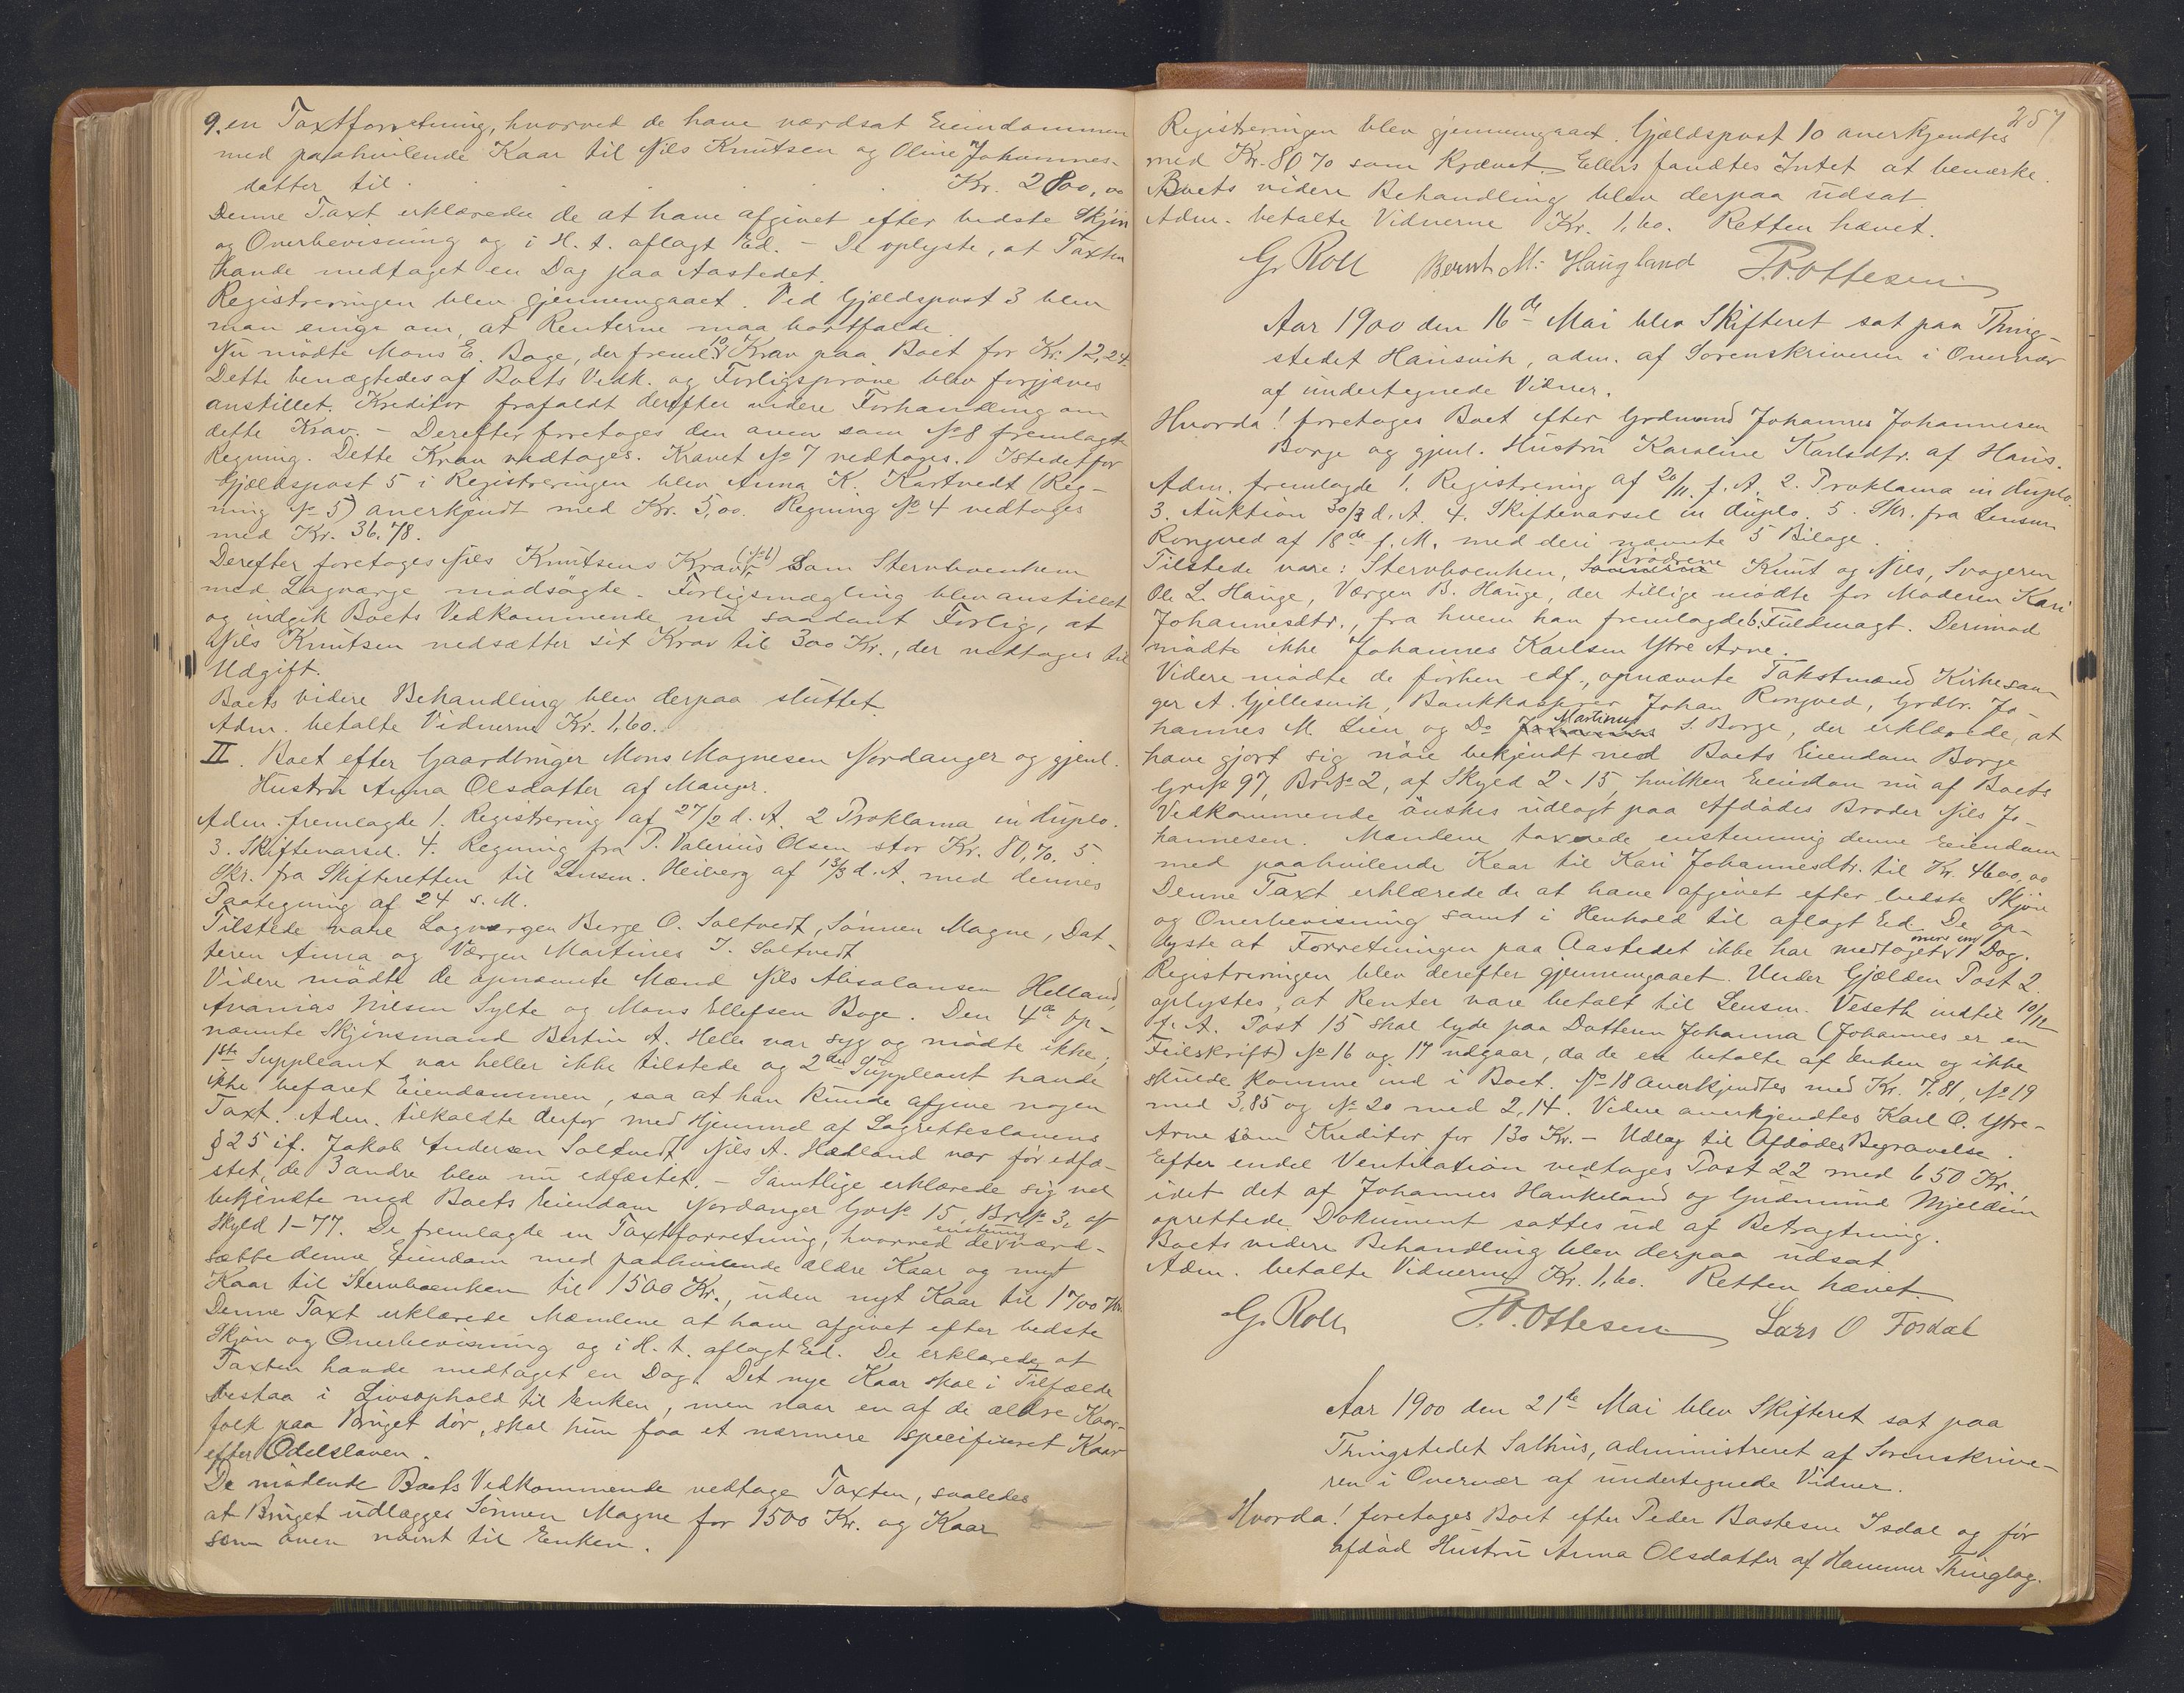 9. en Taxtforretning, hvorved de have værdsat Eiendommen
med paahvilende Kaar til Nils Knutsen og Oline Johannes-
datter til . . . . . Kr. 2800,00
Denne Taxt erklærede de at have afgivet efter bedste Skjøn
og Overbevisning og i H. t. aflagt Ed. – De oplyste, at Taxten
havde medtaget en Dag paa Aastedet.
Registreringen blev gjennemgaaet. Ved Gjældspost 3 blev
man enige om, at Renterne maa bortfalde.
Nu mødte Mons E. Boge, der freml. 10. Krav paa Boet for Kr. 12,24.
Dette benægtedes af Boets Vedk. og Forligsprøve blev forgjæves
anstillet. Kreditor frafaldt derefter videre Forhandling om
dette Krav. – Derefter foretoges den oven som No 8 fremlagte
Regning. Dette Krav vedtoges. Kravet No 7 vedtoges. Istedetfor
Gjældspost 5 i Registreringen blev Anna K. Kartvedt (Reg-
ning No 5) anerkjendt med Kr. 5,00. Regning No 4 vedtoges
med Kr. 36.78.
Derefter foretoges Nils Knutsens Krav (No 6) som Stervboenken
med Lagværge modsagte. Forligsmægling blev anstillet
og indgik Boets Vedkommende nu saadant Forlig, at
Nils Knutsen nedsætter sit Krav til 300 Kr., der vedtoges til
Udgift.
Boets videre Behandling blev derpaa sluttet.
Adm. betalte Vidnerne Kr. 1,60.
II. Boet efter Gaardbruger Mons Magnesen Nordanger og gjenl.
Hustru Anna Olsdatter af Manger.
Adm. fremlagde 1. Registrering af 27/2 d. A. 2 Proklama in duplo.
3. Skiftevarsel. 4. Regning fra P. Valerius Olsen stor Kr. 80,70. 5.
Skr. fra Skifteretten til Lensm. Heiberg af 13/3 d. A. med dennes
Paategning af 24 s. M.
Tilstede vare Lagværgen Berge O. Soltvedt, Sønnen Magne, Dat-
teren Anna og Værgen Martines J. Soltvedt
Videre mødte de opnævnte Mænd Nils Absalonsen Helland,
Ananias Nilsen Sylte og Mons Ellefsen Boge. Den 4de op-
nævnte Skjønsmand Bertin A. Helle var syg og mødte ikke,
1ste Suppleant var heller ikke tilstede og 2den Suppleant havde
ikke befaret Eiendommen, saa at han kunde afgive nogen
Taxt. Adm. tilkaldte derfor med Hjemmel af Lagretteslovens
§ 25 i. f. Jakob Andersen Soltvedt. Nils A. Hadland var før edfæ-
stet, de 3 andre blev nu edfæstet. – Samtlige erklærede sig vel
bekjendte med Boets Eiendom Nordanger Gno. 15, Bno. 3, af
Skyld 1-77. De fremlagde en Taxtforretning, hvorved de enstemmig værd-
satte denne Eiendom med paahvilende ældre Kaar og nyt
Kaar til Stervboenken til 1500 Kr., uden nyt Kaar til 1700 Kr.
Denne Taxt erklærede Mændene at have afgivet efter bedste
Skjøn og Overbevisning og i H. t. aflagt Ed. De erklærede, at
Taxten havde medtaget en Dag. Det nye Kaar skal i Tilfælde
bestaa i Livsophold til Enken, men naar en af de ældre Kaar-
folk paa Bruget dør, skal hun faa et nærmere specificeret Kaar
efter Odelsloven.
De mødende Boets Vedkommende vedtoge Taxten, saaledes
at Bruget udlægges Sønnen Magne for 1500 Kr. og Kaar
som oven nævnt til Enken.
257
Registreringen blev gjennemgaaet. Gjældspost 10 anerkjendtes
med Kr. 80 70 som krævet. Ellers fandtes Intet at bemærke.
Boets videre Behandling blev derpaa udsat.
Adm. betalte Vidnerne Kr. 1,60. Retten hævet.
G. Roll Bernt M. Haugland P.O. Ottesen
Aar 1900 den 16de Mai blev Skifteret sat paa Thing-
stedet Hausvik, adm. af Sorenskriveren i Overvær
af undertegnede Vidner.
Hvorda! foretoges Boet efter Grdmand Johannes Johannesen
Borge og gjenl. Hustru Karoline Karlsdtr. af Haus.
Adm. fremlagde 1. Registrering af 20/11. f. A. 2. Proklama in duplo.
3. Auktion 30/3 d. A. 4. Skiftevarsel in duplo. 5. Skr. fra Lensm.
Rongved af 18de f. M. med deri nævnte 5 Bilage.
Tilstede vare: Stervboenken, Brødrene Knut og Nils, Svogeren
Ole L. Hauge, Værgen B. Hauge, der tillige mødte for Moderen Kari
Johannesdtr., fra hvem han fremlagde 6. Fuldmagt. Derimod
mødte ikke Johannes Karlsen Ytre Arne.
Videre mødte de forhen edf., opnævnte Takstmænd Kirkesan-
ger A. Gjellesvik, Bankkasserer Johan Rongved, Grdbr. Jo-
hannes M. Lien og Do Martinus S. Borge, der erklærede, at
have gjort sig nøie bekjendt med Boets Eiendom Borge
Grno 97, Brno 2, af Skyld 2-15, hvilken Eiendom nu af Boets
Vedkommende ønskes udlagt paa Afdødes Broder Nils Jo-
hannesen. Mændene taxerede enstemmig denne Eiendom
med paahvilende Kaar til Kari Johannesdtr. til Kr. 4600,00
Denne Taxt erklærede de at have afgivet efter bedste Skjøn
og Overbevisning samt i Henhold til aflagt Ed. De op-
lyste at Forretningen paa Aastedet ikke har medtaget mere end 1 Dag.
Registreringen blev derefter gjennemgaaet. Under Gjælden Post 2
oplystes, at Renter vare betalt til Lensm. Veseth indtil 10/12
f. A. Post 15 skal lyde paa Datteren Johanna (Johannes er en
Feilskrift) No 16 og 17 udgaar, da de er betalte af Enken og ikke
skulde komme ind i Boet. No 18 anerkjendtes med Kr. 7.81, No 19
med 3,85 og No 20 med 2,14. Videre anerkjendtes Karl O. Ytre-
Arne som Kreditor for 130 Kr. – Udlæg til Afdødes Begravelse.
Efter endel Ventilation vedtoges Post 22 med 650 Kr.,
idet det af Johannes Haukeland og Gudmund Mjeldeim
oprettede Dokument sattes ud af Betragtning.
Boets videre Behandling blev derpaa udsat.
Adm. betalte Vidnerne Kr. 1,60. Retten hævet.
G. Roll P.O. Ottesen Lars O Fosdal
Aar 1900 den 21de Mai blev Skifteret sat paa
Thingstedet Salhus, administreret af Sorenskrive-
ren i Overvær af undertegnede Vidner.
Hvorda! foretoges Boet efter Peder Bastesen Isdal og før
afdød Hustru Anna Olsdatter af Hammer Thinglag.